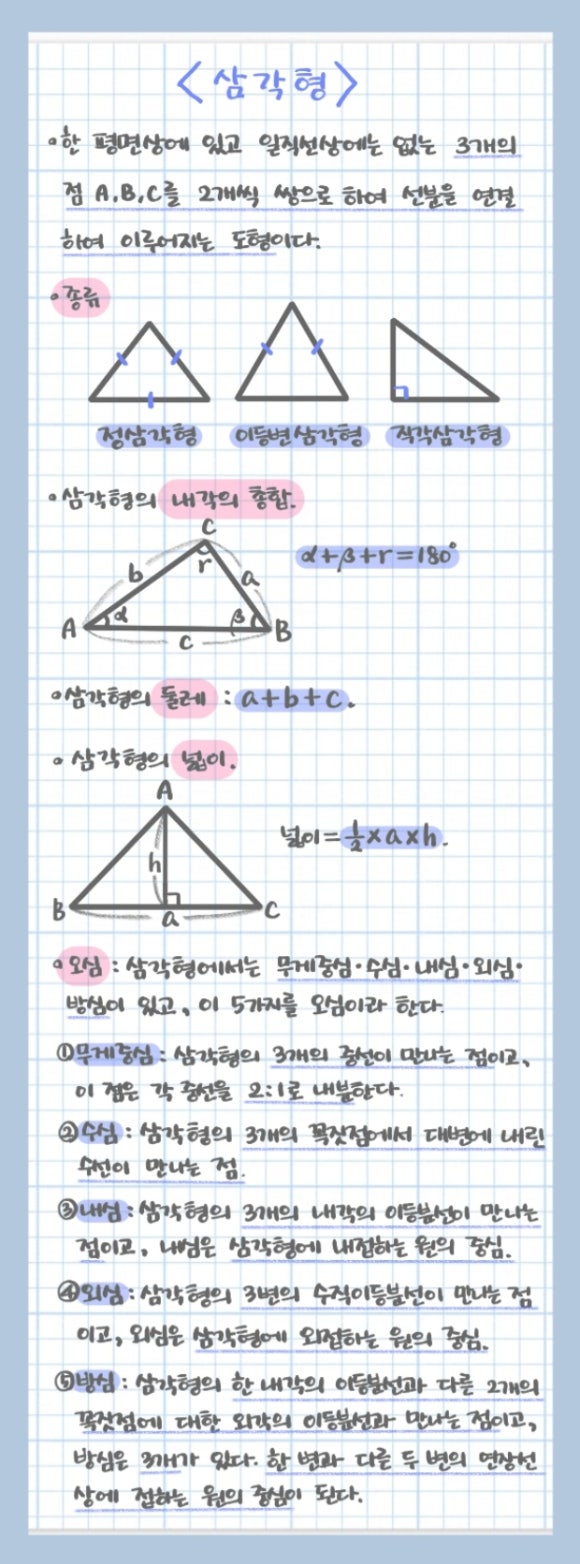 <삼각형>
•한 평면상에 있고 일직선상에는 없는 3개의
점 A,B,C를 2개씩 쌍으로 하여 선분을 연결
하여 이루어지는 도형이다.
•종류
정삼각형 이등변삼각형 직각삼각형
•삼각형의 내각의 총합.
C
α+β+r=180°
b r a
A α β B
c
•삼각형의 둘레 : a+b+c.
•삼각형의 넓이.
A
넓이=½×a×h.
h
B a C
•오심 : 삼각형에서는 무게중심·수심·내심·외심·
방심이 있고, 이 5가지를 오심이라 한다.
①무게중심 : 삼각형의 3개의 중선이 만나는 점이고,
이 점은 각 중선을 2:1로 내분한다.
②수심 : 삼각형의 3개의 꼭짓점에서 대변에 내린
수선이 만나는 점.
③내심 : 삼각형의 3개의 내각의 이등분선이 만나는
점이고, 내심은 삼각형에 내접하는 원의 중심.
④외심 : 삼각형의 3변의 수직이등분선이 만나는 점
이고, 외심은 삼각형에 외접하는 원의 중심.
⑤방심 : 삼각형의 한 내각의 이등분선과 다른 2개의
꼭짓점에 대한 외각의 이등분선과 만나는 점이고,
방심은 3개가 있다. 한 변과 다른 두 변의 연장선
상에 접하는 원의 중심이 된다.